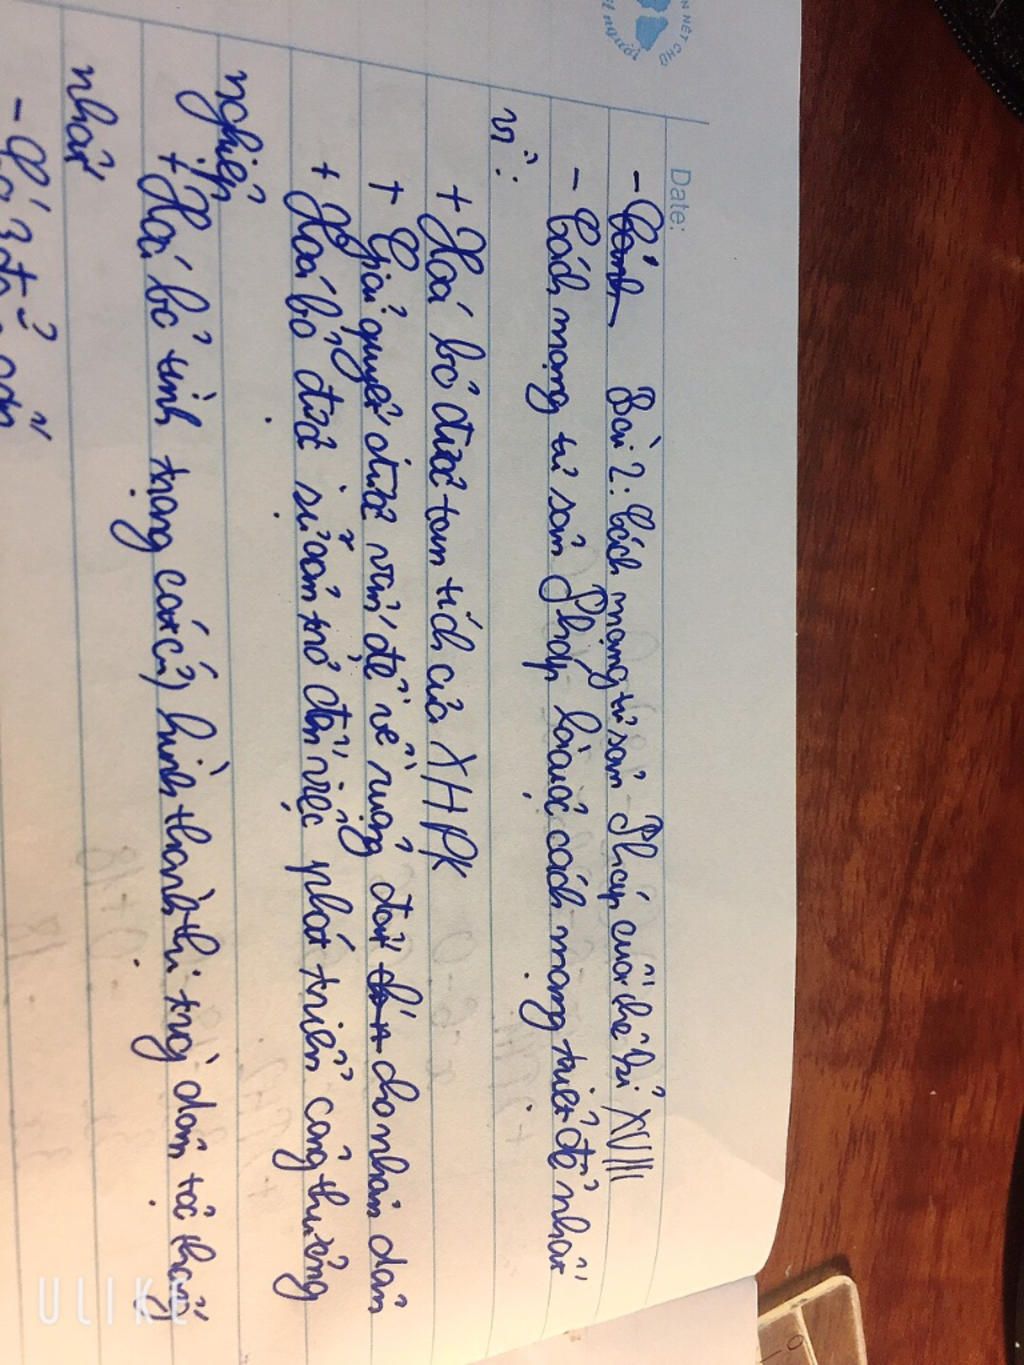 NÉT CHỮ
nết người
Date:
- Cánh Bài 2: Cách mạng tư sản Pháp cuối thế kỉ XVIII
- Cách mạng tư sản Pháp là cuộc cách mạng triệt để nhất
vì:
+ Xoá bỏ được tàn tích của XHPK
+ Giải quyết được vấn đề về ruộng đất cho nhân dân
+ Xoá bỏ được sự cản trở đến việc phát triển công thương
nghiệp
+ Xoá bỏ tình trạng cát cứ, hình thành thị trg dân tộc thống
nhất
ULIKE